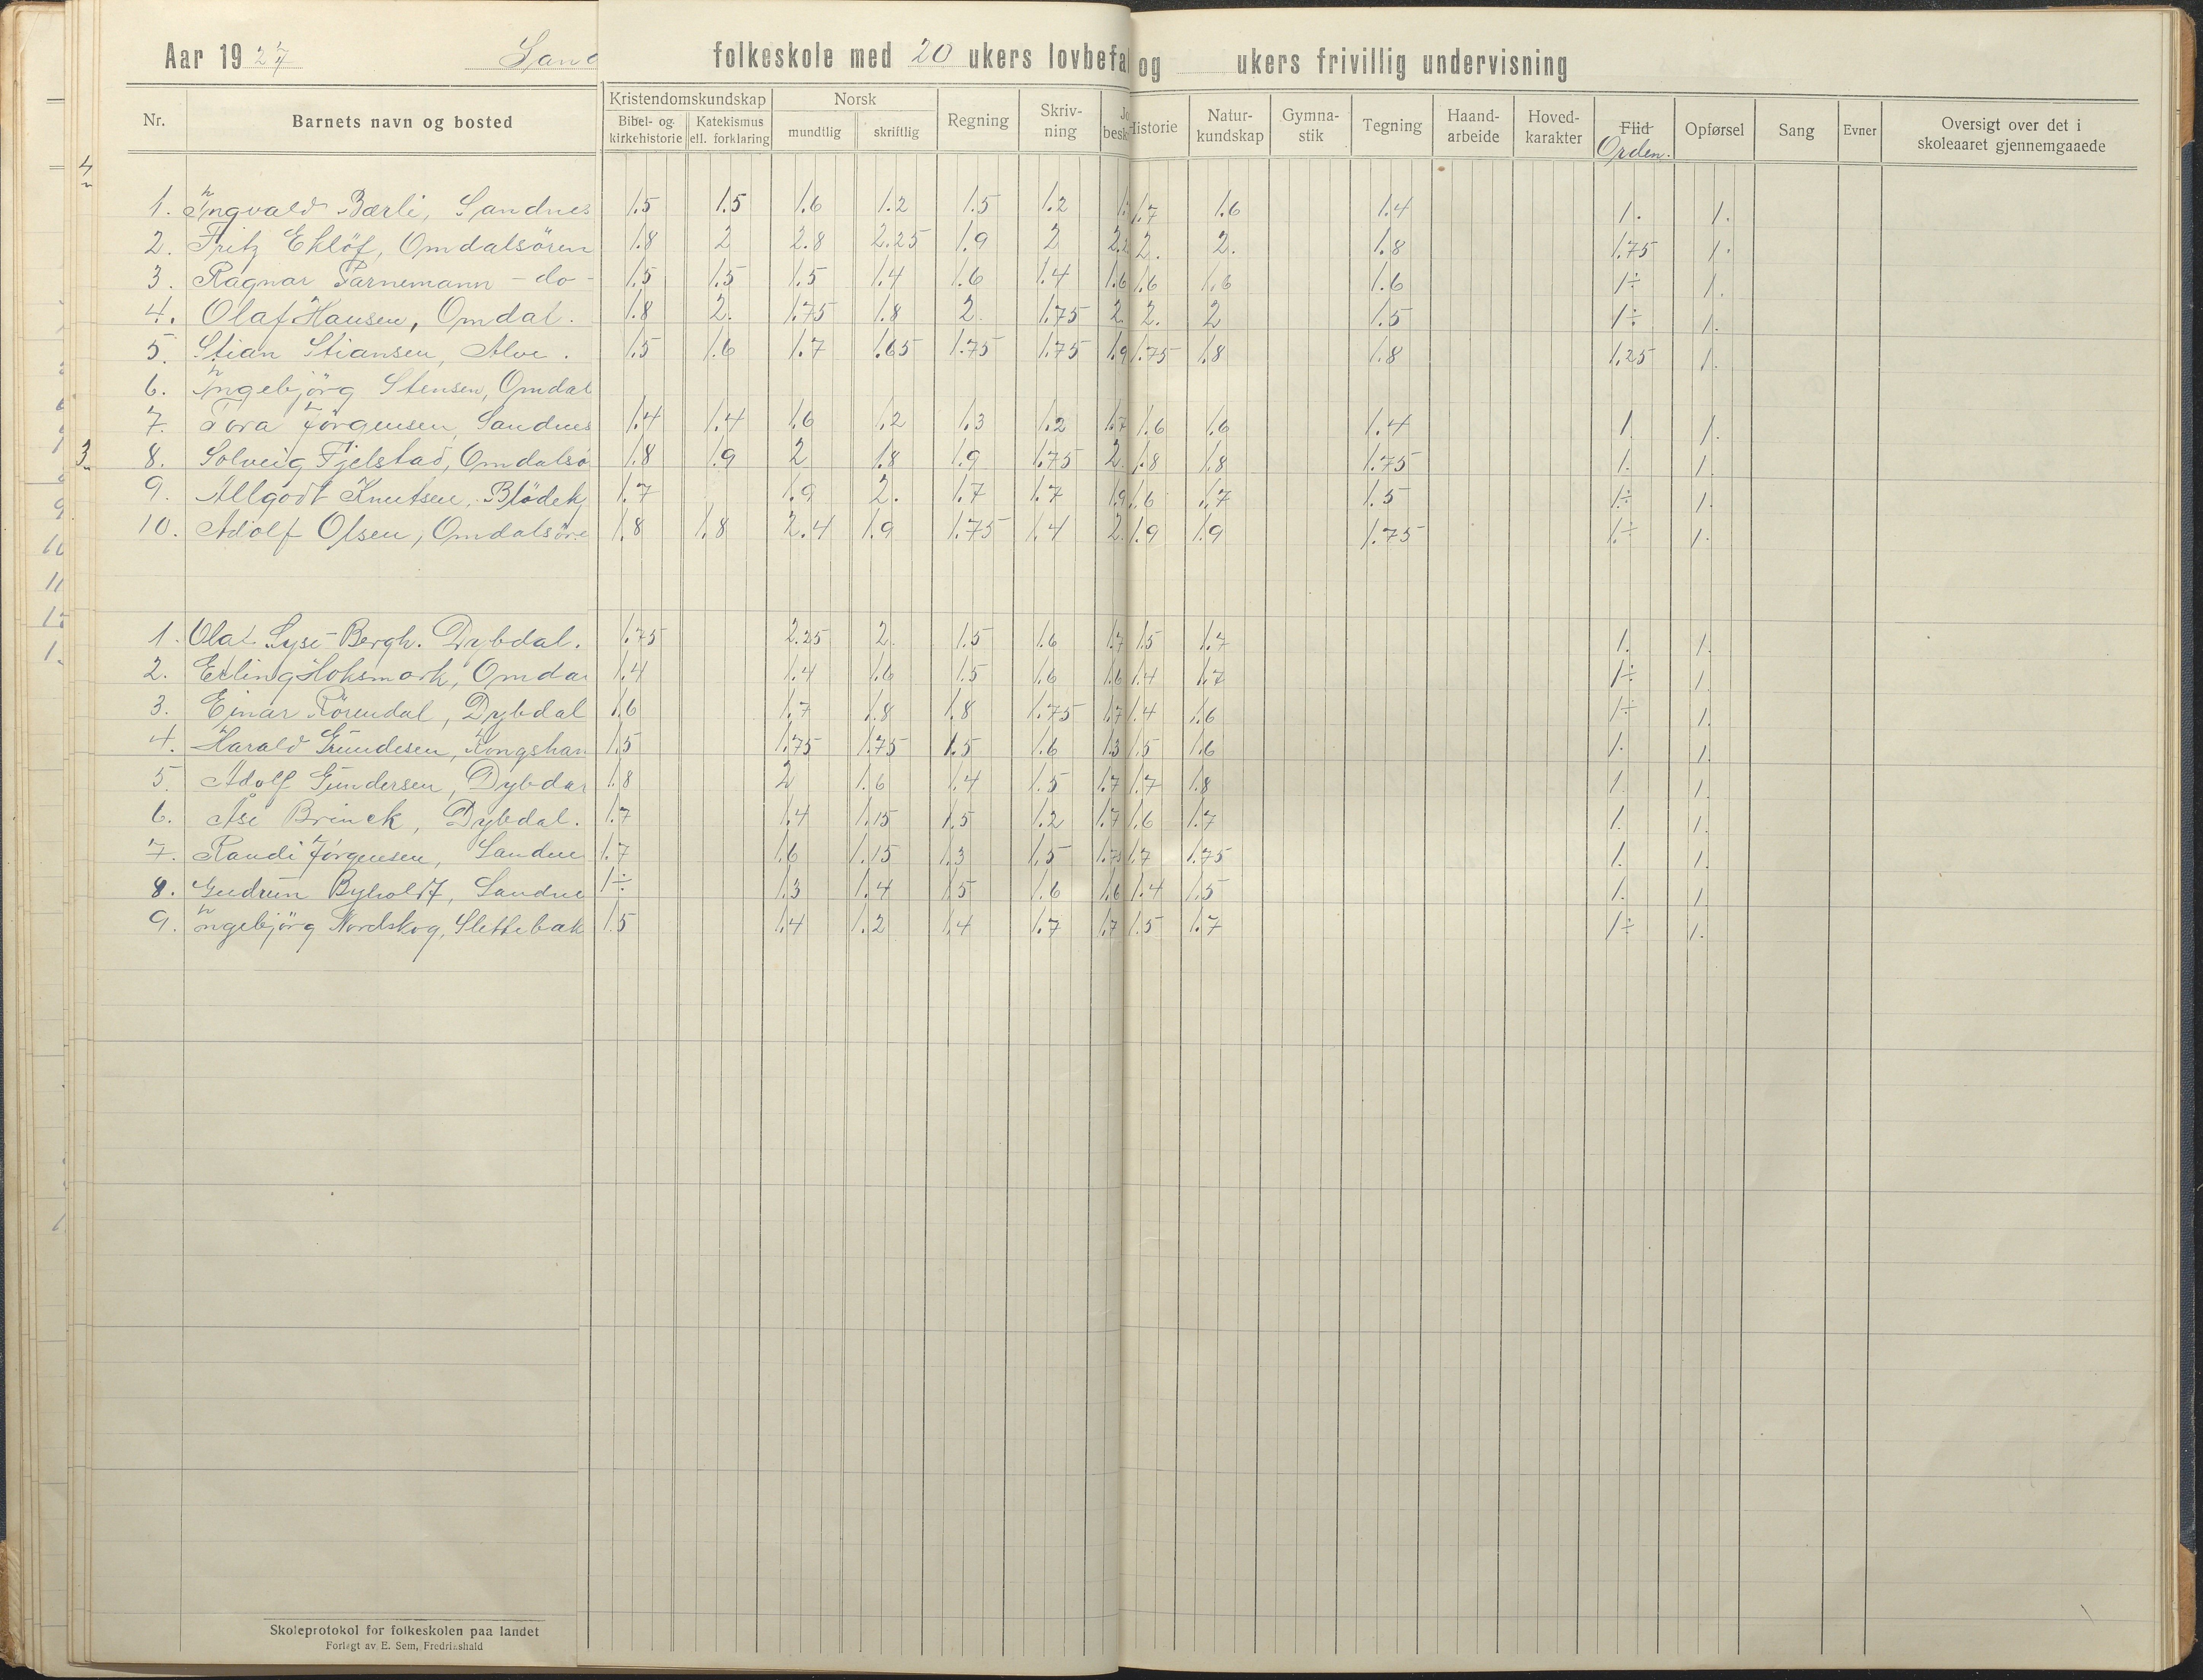 Aar 1927 Sand folkeskole med 20 ukers lovbefal og ukers frivillig undervisning
Nr. Barnets navn og bosted Kristendomskundskap Bibel- og kirkehistorie Katekismus ell. forklaring Norsk mundtlig skriftlig Regning Skriv-ning Jo besk Historie Natur-kundskap Gymna-stik Tegning Haand-arbeide Hoved-karakter Flid Orden. Opførsel Sang Evner Oversigt over det i skoleaaret gjennemgaaede
1. Ingvald Bærli, Sandnes 1.5 1.5 1.6 1.2 1.5 1.2 1.7 1.6 1.4 1. 1.
2. Fritz Eklöf, Omdalsören 1.8 2 2.8 2.25 1.9 2 2.2 2. 2. 1.8 1.75 1.
3. Ragnar Parnemann - do - 1.5 1.5 1.5 1.4 1.6 1.4 1.6 1.6 1.6 1.6 1÷ 1.
4. Olaf Hansen, Omdal. 1.8 2. 1.75 1.8 2. 1.75 2 2. 2 1.5 1÷ 1.
5. Stian Stiansen, Alve. 1.5 1.6 1.7 1.65 1.75 1.75 1.9 1.75 1.8 1.8 1.25 1.
6. Ingebjörg Stensen, Omdal
7. Tora Jörgensen, Sandnes 1.4 1.4 1.6 1.2 1.3 1.2 1.7 1.6 1.6 1.4 1. 1.
8. Solveig Fjelstad, Omdalsö 1.8 1.9 2 1.8 1.9 1.75 2. 1.8 1.8 1.75 1. 1.
9. Allgodt Knutsen, Blödekj 1.7 1.9 2. 1.7 1.7 1.9 1.6 1.7 1.5 1÷ 1.
10. Adolf Olsen, Omdalsöre 1.8 1.8 2.4 1.9 1.75 1.4 2. 1.9 1.9 1.75 1÷ 1.
1. Olaf Syse-Bergh. Dybdal. 1.75 2.25 2. 1.5 1.6 1.7 1.5 1.7 1. 1.
2. Erling Hoksmork, Omdal 1.4 1.4 1.6 1.5 1.6 1.6 1.4 1.7 1÷ 1.
3. Einar Rörendal, Dybdal 1.6 1.7 1.8 1.8 1.75 1.7 1.4 1.6 1÷ 1.
4. Harald Gundesen, Kongshan 1.5 1.75 1.75 1.5 1.6 1.3 1.5 1.6 1. 1.
5. Adolf Gundersen, Dybdal 1.8 2 1.6 1.4 1.5 1.7 1.7 1.8 1. 1.
6. Åse Brinck, Dybdal. 1.7 1.4 1.15 1.5 1.2 1.7 1.6 1.7 1. 1.
7. Randi Jörgensen, Sandne 1.7 1.6 1.15 1.3 1.5 1.75 1.7 1.75 1. 1.
8. Gudrun Byholdt, Sandne 1÷ 1.3 1.4 1.5 1.6 1.6 1.4 1.5 1. 1.
9. Ingebjörg Nordskog, Slettebak 1.5 1.4 1.2 1.4 1.7 1.7 1.5 1.7 1÷ 1.
Skoleprotokol for folkeskolen paa landet
Forlagt av E. Sem, Fredrikshald